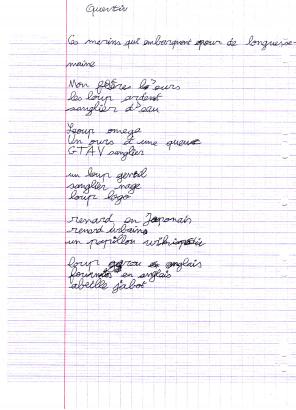 Quentin
Ces marins qui embarquent pour de longues se-
maine
Mon frères l'ours
les loup ardent
sanglier d'eau
Loup omega
Un ours et une queue
GTAV sanglier
un loup gentil
sanglier nage
loup logo
renard en Japonais
renard urbains
un papillon wikipédia
loup garou en anglais
fourmis en anglais
abeille jabot